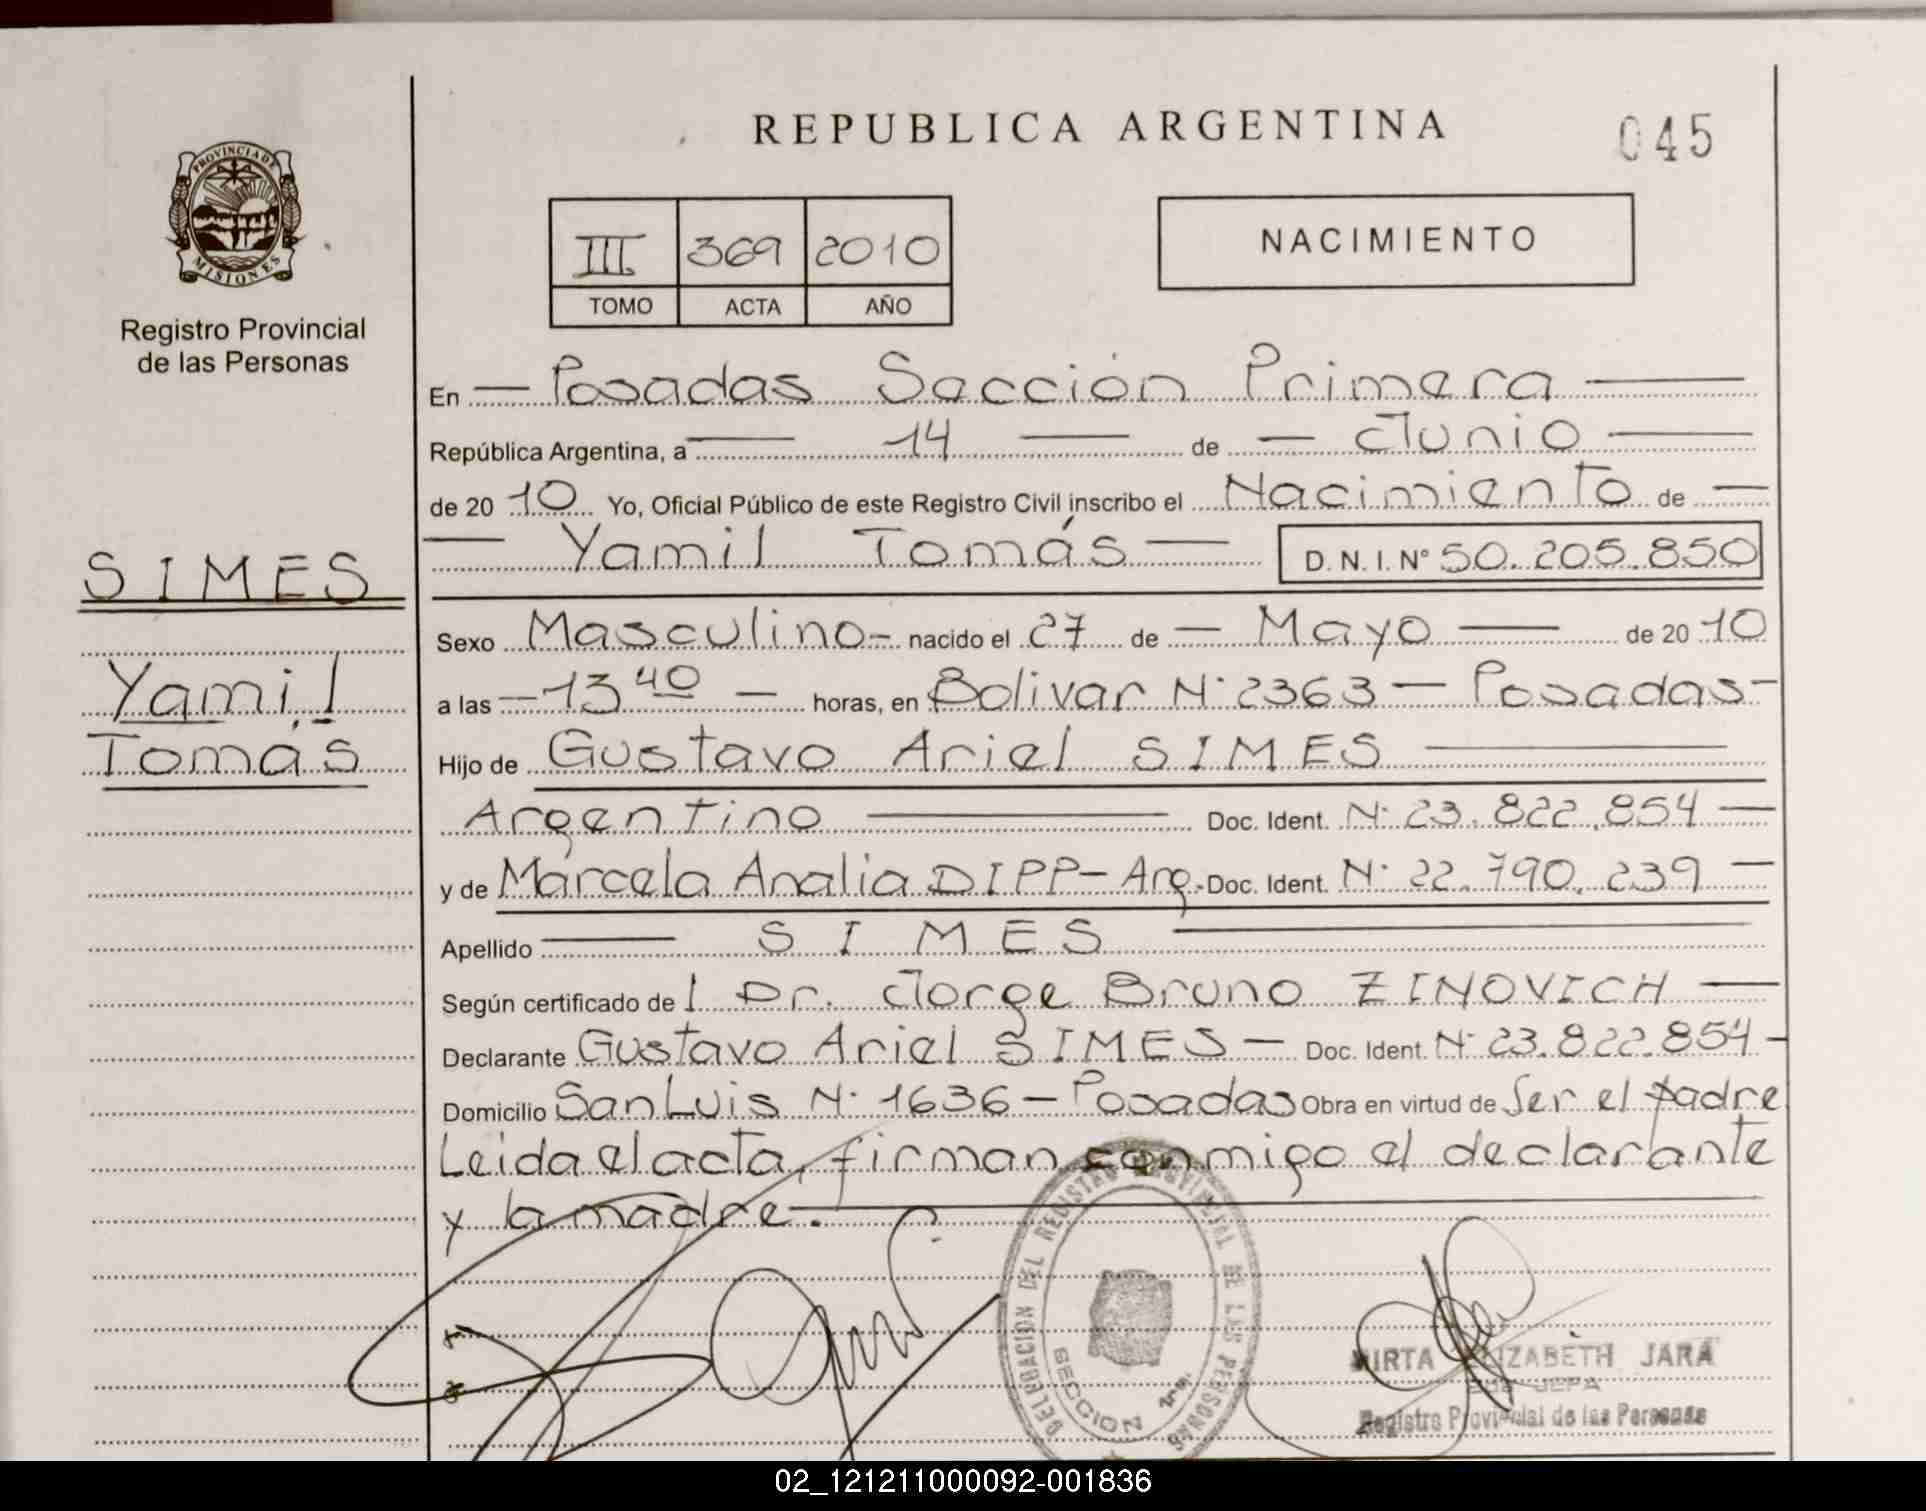 REPUBLICA ARGENTINA
045
PROVINCIA DE
MISIONES
Registro Provincial
de las Personas
III 369 2010
TOMO ACTA AÑO
NACIMIENTO
En — Posadas Sección Primera —
República Argentina, a — 14 — de — Junio —
de 20 10 Yo, Oficial Público de este Registro Civil inscribo el Nacimiento de —
— Yamil Tomás — D.N.I. Nº 50.205.850
SIMES
Yamil
Tomás
Sexo Masculino - nacido el 27 de — Mayo — de 20 10
a las — 13 40 — horas, en Bolivar N° 2363 — Posadas -
Hijo de Gustavo Ariel SIMES —
Argentino — Doc. Ident. N° 23.822.854 —
y de Marcela Analia DIPP - Arg. Doc. Ident. N° 22.790.239 —
Apellido — SIMES —
Según certificado de l Dr. Jorge Bruno ZINOVICH —
Declarante Gustavo Ariel SIMES — Doc. Ident. N° 23.822.854 -
Domicilio San Luis N° 1636 — Posadas Obra en virtud de Ser el padre
Leida el acta, firman conmigo el declarante
y la madre. —
DELEGACION DEL REGISTRO PROVINCIAL DE LAS PERSONAS
SECCION 1ra.
MIRTA ELIZABETH JARA
SUB JEFA
Registro Provincial de las Personas
02_121211000092-001836